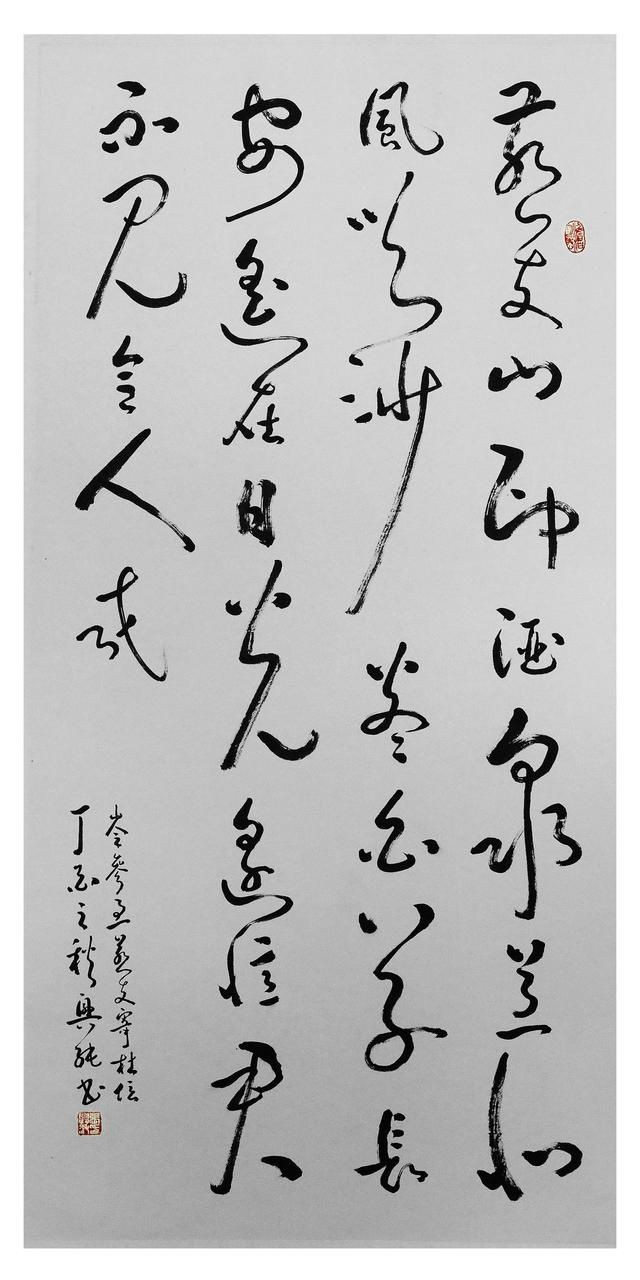 燕支山西酒泉道北
風吹沙卷白草長
安遙在日光邊憶君
不見令人老
岑參過燕支寄杜位
丁酉之秋興書